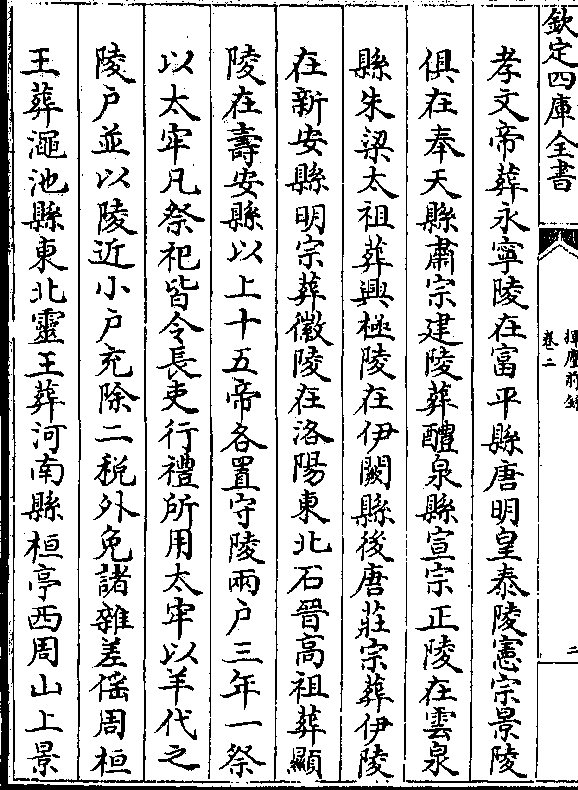 欽定四庫全書
揮麈前錄
卷二
二
孝文帝葬永寧陵在富平縣唐明皇泰陵憲宗景陵
俱在奉天縣肅宗建陵葬醴泉縣宣宗正陵在雲泉
縣朱梁太祖葬興極陵在伊闕縣後唐莊宗葬伊陵
在新安縣明宗葬徽陵在洛陽東北石晉高祖葬顯
陵在壽安縣以上十五帝各置守陵兩户三年一祭
以太牢凡祭祀皆令長吏行禮所用太牢以羊代之
陵户並以陵近小户充除二税外免諸雜差徭周桓
王葬澠池縣東北靈王葬河南縣桓亭西周山上景